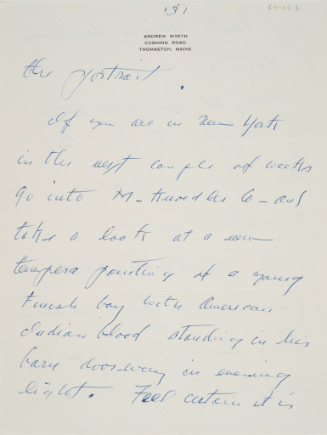 ANDREW WYETH
CUSHING ROAD
THOMASTON, MAINE
the portrait.
If you are in New York
in the next couple of weeks
Go into M. Knoedler Co and
take a look at a new
tempera painting of a young
Finish boy with American
Indian blood standing in his
barn doorway in evening
light. Feel certain it is